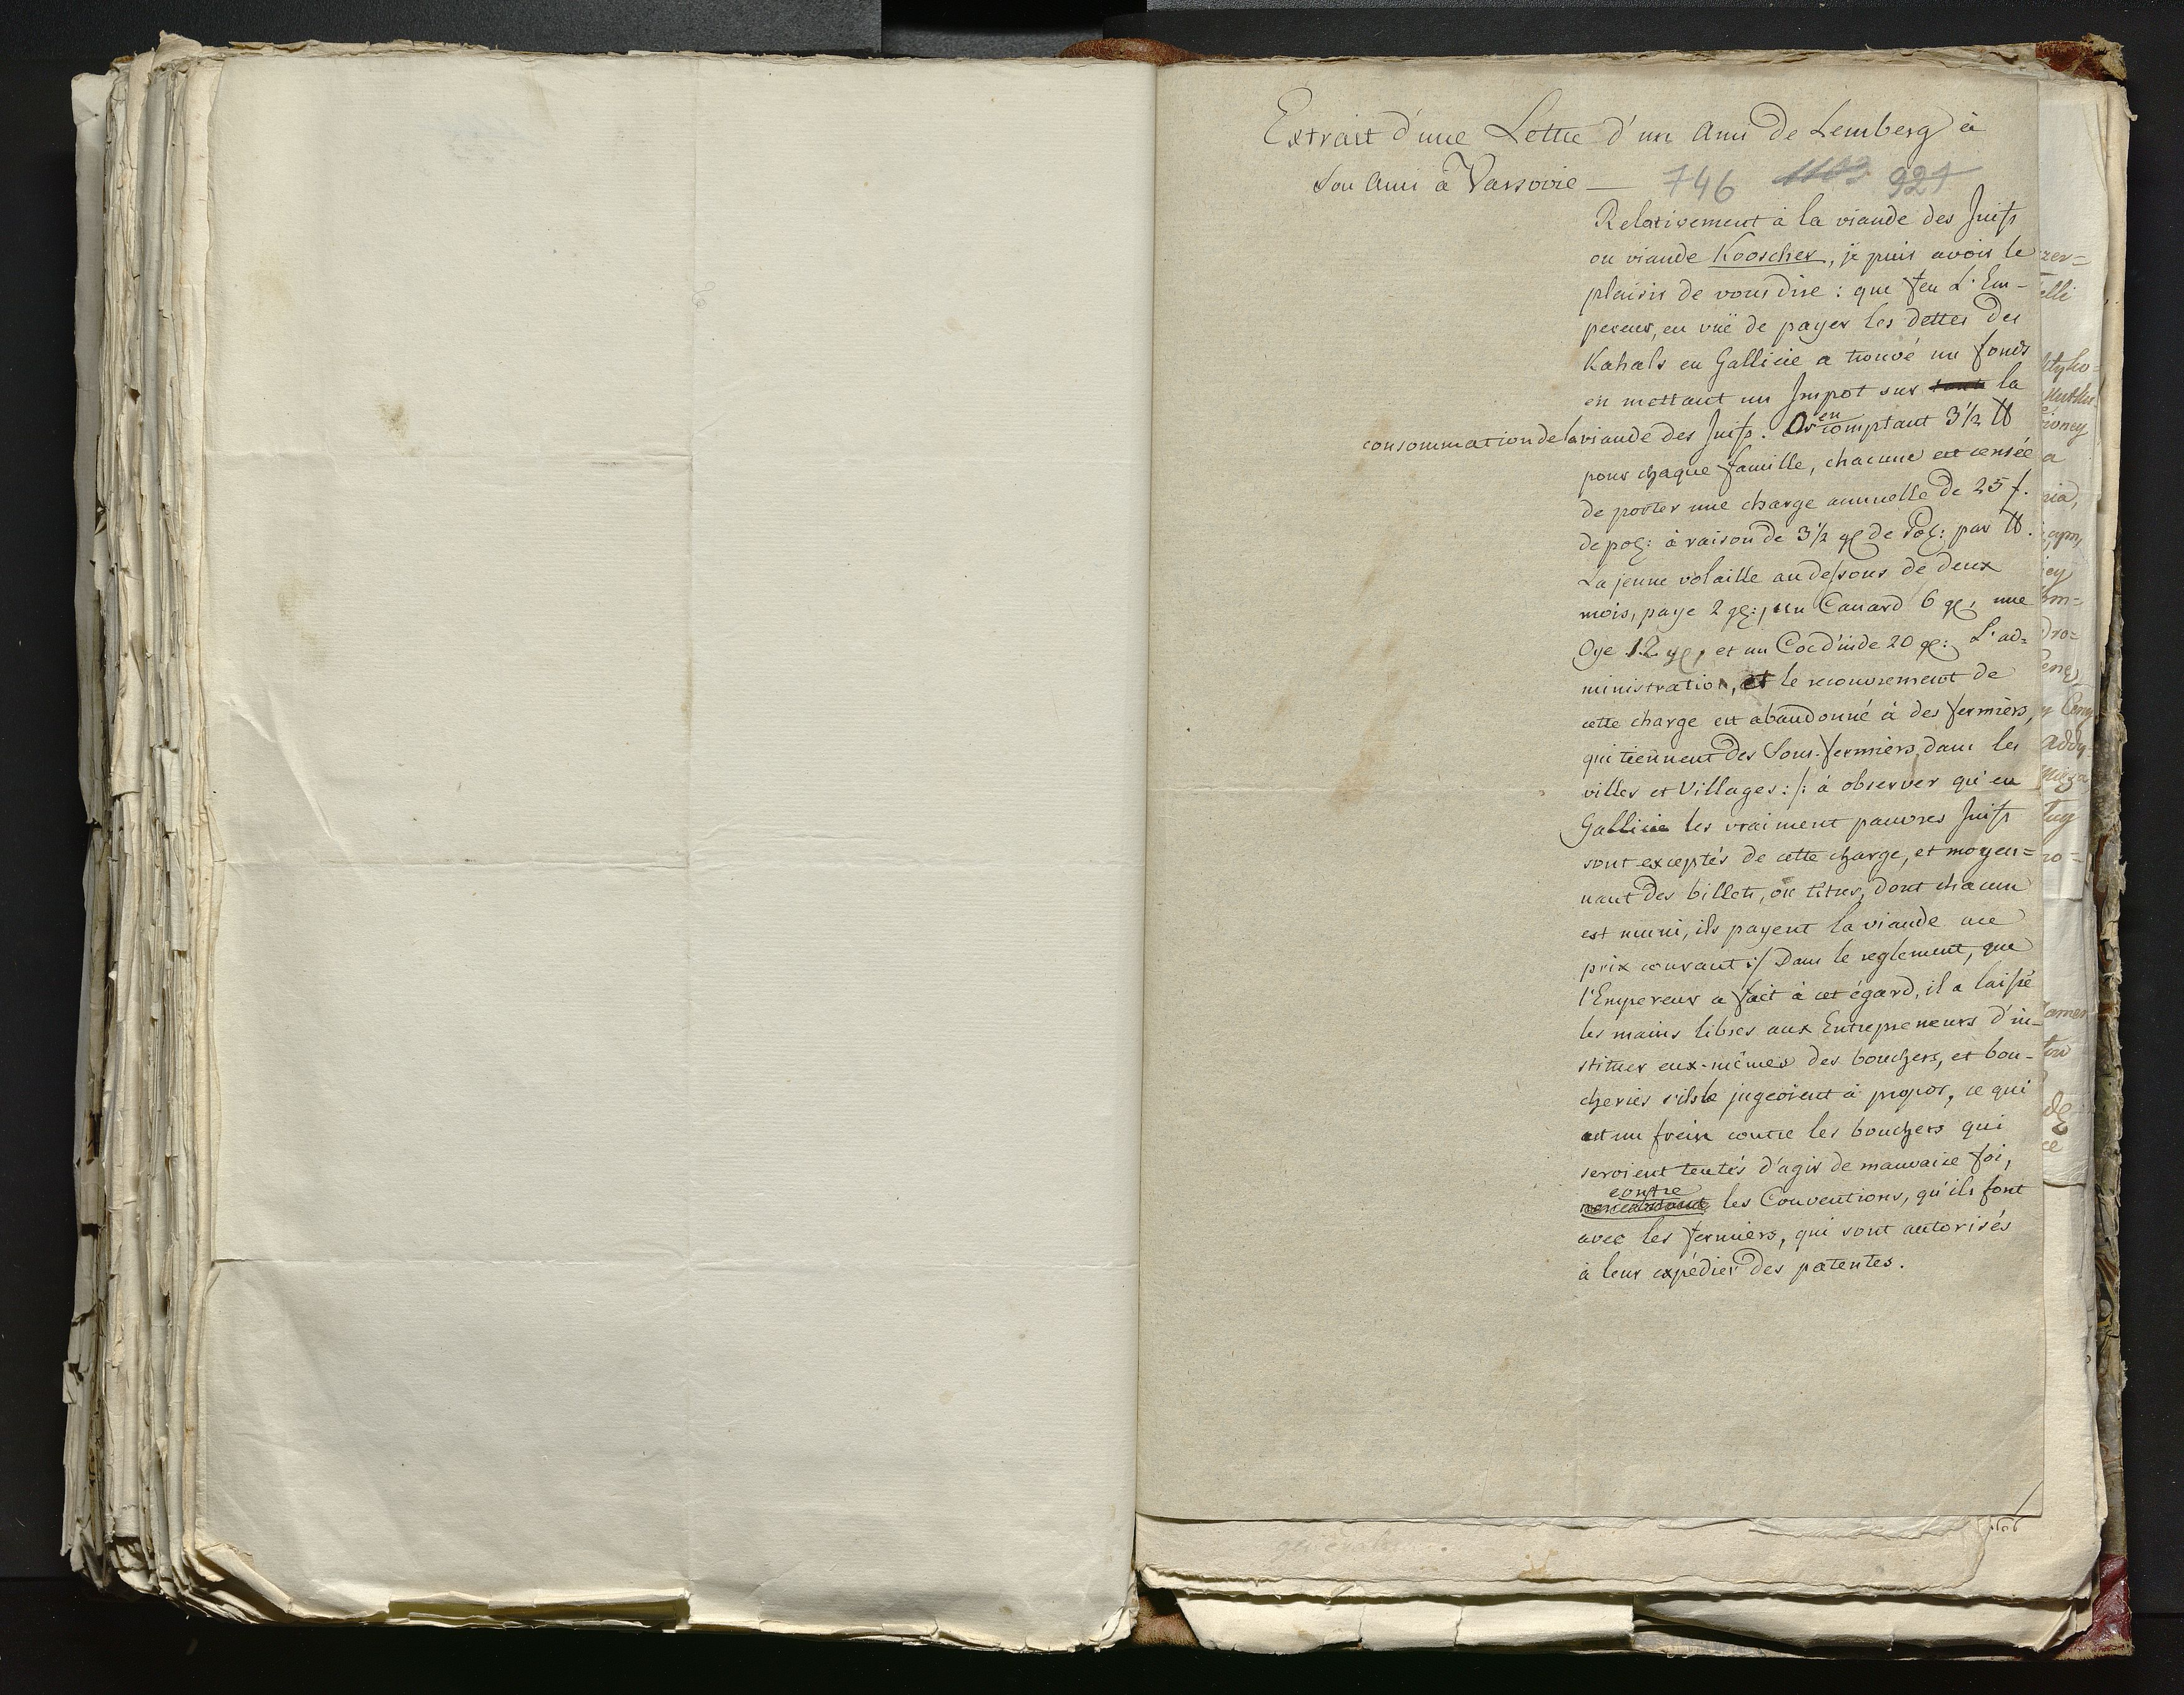 Extrait d'une Lettre d'un Ami de Lemberg à
Son Ami à Varsovie —
746 1103 921
Relativement à la viande des Juifs
ou viande Kooscher, je puis avoir le
plaisir de vous dire : que feu L'Em-
pereur, en vuë de payer les dettes des
Kahals en Gallicie a trouvé un fonds
en mettant un Impot sur la
consommation de la viande des Juifs. Or en comptant 3½ ℔
pour chaque famille, chacune est censée
de porter une charge annuelle de 25 f.
de pol: à raison de 3½ gl de Pol: par ℔.
La jeune volaille au dessous de deux
mois, paye 2 gl:, un Canard 6 gl, une
Oye 12 gl, et un Coc d'inde 20 gl: L'ad=
ministration, et le recouvrement de
cette charge est abandonné à des fermiers,
qui tiennent des Sous-fermiers, dans les
villes et Villages : /: à observer qu'en
Gallicie les vraiment pauvres Juifs
sont exceptés de cette charge, et moyen=
nant des billets, ou titres, dont chacun
est muni, ils payent la viande au
prix courant :/ Dans le reglement, que
l'Empereur a fait à cet égard, il a laissé
les mains libres aux Entrepreneurs d'in-
stituer eux-mêmes des bouchers, et bou-
cheries s'ils le jugeoient à propos, ce qui
est un frein contre les bouchers qui
seroient tentés d'agir de mauvaise foi,
contre
les Conventions, qu'ils font
avec les fermiers, qui sont autorisés
à leur expédier des patentes.